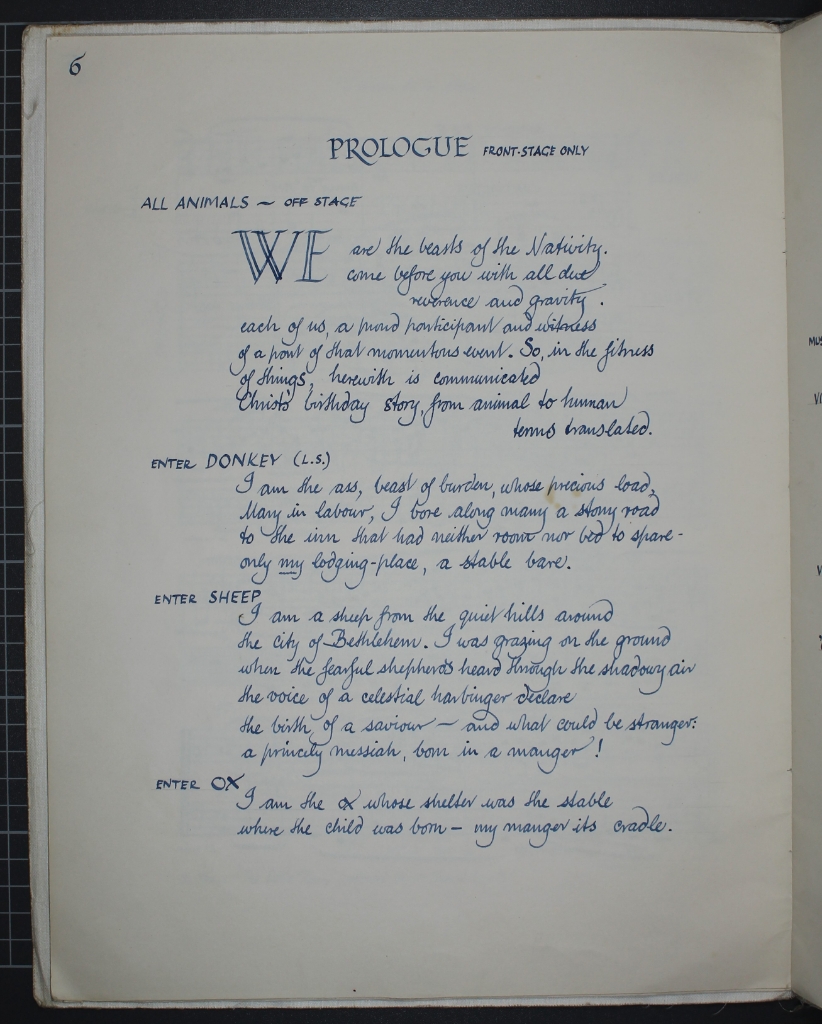 6
PROLOGUE FRONT-STAGE ONLY
ALL ANIMALS ~ OFF STAGE
WE are the beasts of the Nativity.
come before you with all due
reverence and gravity.
each of us, a proud participant and witness
of a part of that momentous event. So, in the fitness
of things, herewith is communicated
Christ's birthday story, from animal to human
terms translated.
ENTER DONKEY (L.S.)
I am the ass, beast of burden, whose precious load,
Mary in labour, I bore along many a stony road
to the inn that had neither room nor bed to spare -
only my lodging-place, a stable bare.
ENTER SHEEP
I am a sheep from the quiet hills around
the city of Bethlehem. I was grazing on the ground
when the fearful shepherds heard through the shadowy air
the voice of a celestial harbinger declare
the birth of a saviour — and what could be stranger:
a princely messiah, born in a manger!
ENTER OX
I am the ox whose shelter was the stable
where the child was born — my manger its cradle.